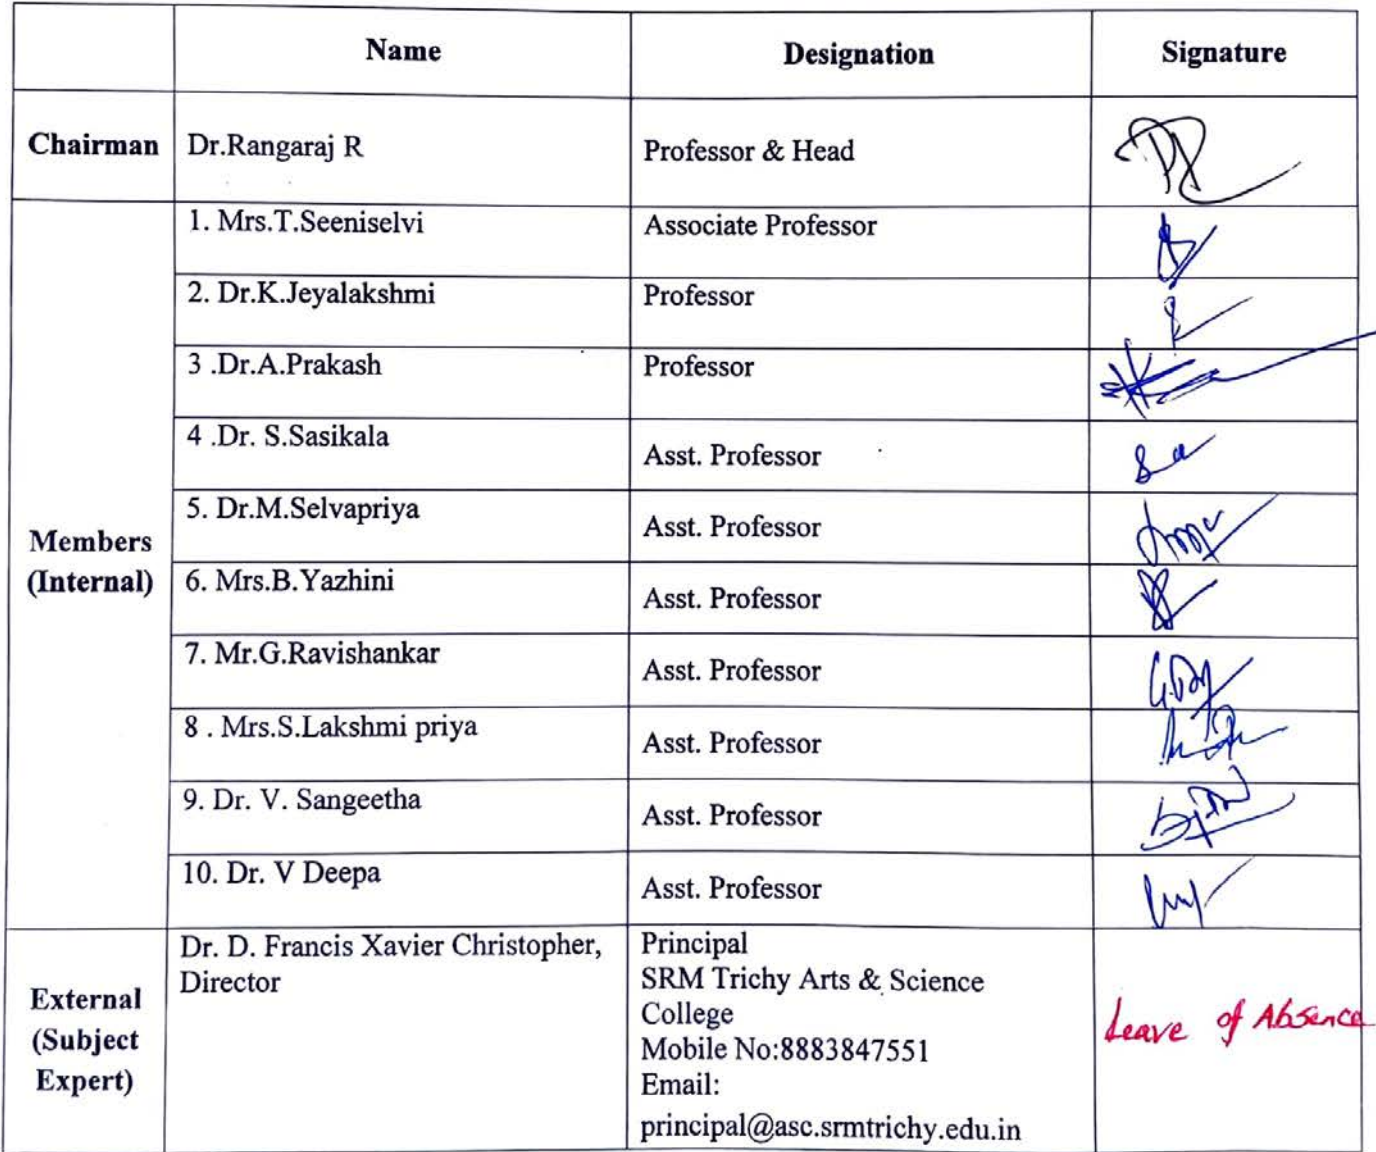 Name Designation Signature
Chairman Dr.Rangaraj R Professor & Head
1. Mrs.T.Seeniselvi Associate Professor
2. Dr.K.Jeyalakshmi Professor
3 .Dr.A.Prakash Professor
4 .Dr. S.Sasikala Asst. Professor
5. Dr.M.Selvapriya Asst. Professor
Members
(Internal)
6. Mrs.B.Yazhini Asst. Professor
7. Mr.G.Ravishankar Asst. Professor
8 . Mrs.S.Lakshmi priya Asst. Professor
9. Dr. V. Sangeetha Asst. Professor
10. Dr. V Deepa Asst. Professor
External
(Subject
Expert)
Dr. D. Francis Xavier Christopher,
Director
Principal
SRM Trichy Arts & Science
College
Mobile No:8883847551
Email:
principal@asc.srmtrichy.edu.in
Leave of Absence